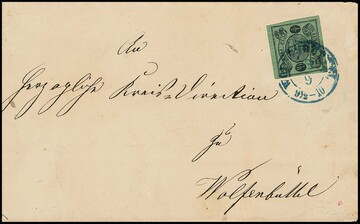 An
Herzogliche Kreis-Direction
zu
Wolfenbüttel
9